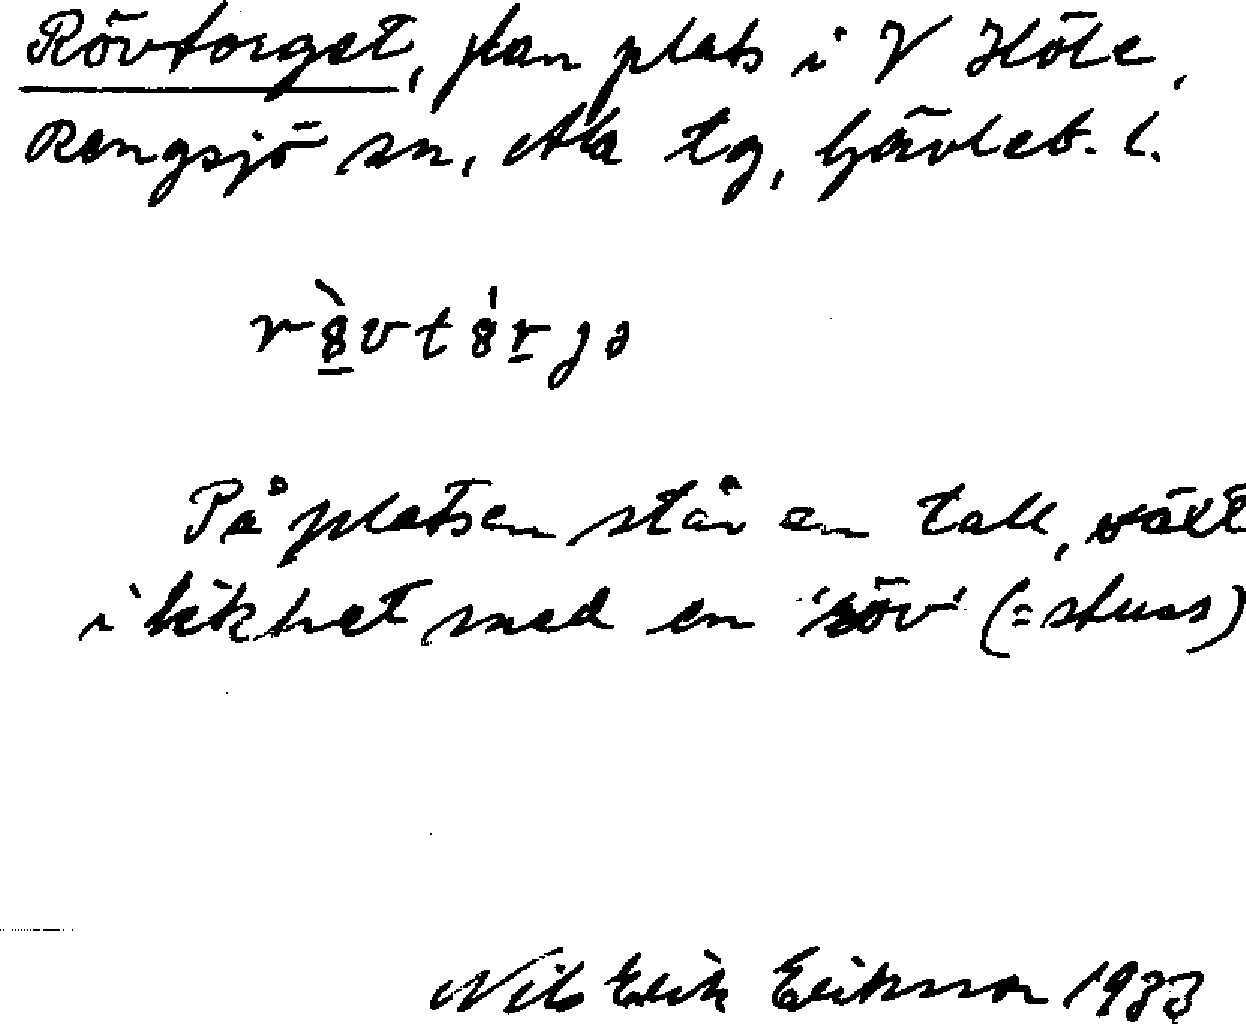 Rövtorget, plan plats i V Höle,
Rengsjö sn, Ala tg, Gävleb. l.
rö̀vtö́rjə
På platsen står en tall, växt
i likhet med en 'röv' (= stuss)
Nils Erik Eriksson 1933